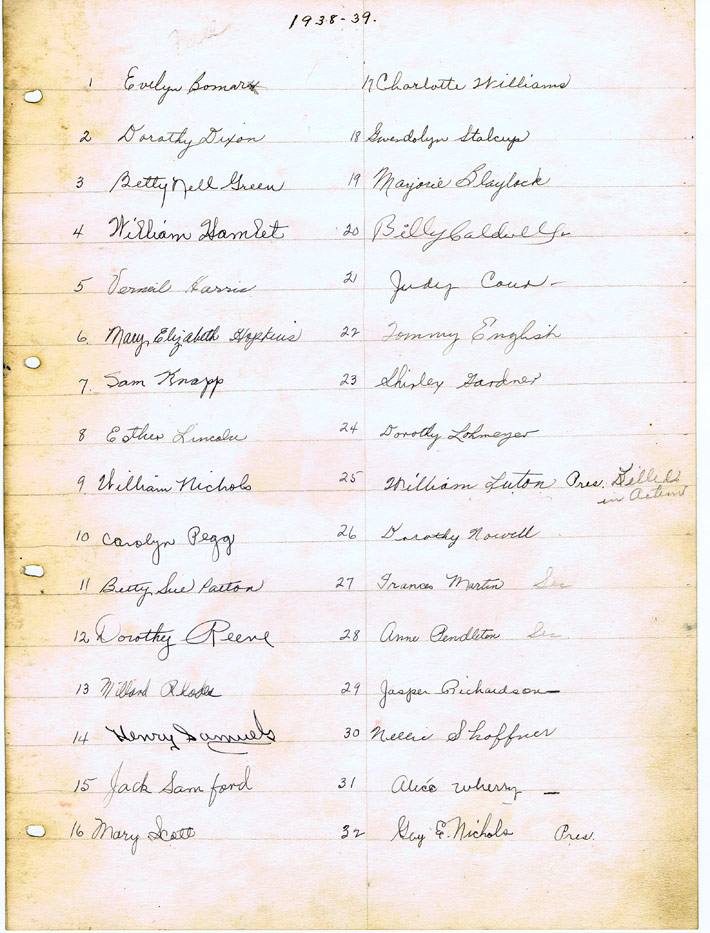 1938-39.
1 Evelyn Bomar
2 Dorothy Dixon
3 Betty Nell Green
4 William Hamlet
5 Verneil Harris
6. Mary Elizabeth Hopkins
7. Sam Knapp
8 Esther Lincoln
9 William Nichols
10 Carolyn Pegg
11 Betty Sue Patton
12 Dorothy Reeve
13 Millard Rhodes
14 Henry Samuels
15 Jack Samford
16 Mary Scott
17 Charlotte Williams
18 Gwendolyn Stalcup
19 Marjorie Blaylock
20 Billy Caldwell Jr
21 Judy Cour -
22 Tommy English
23 Shirley Gardner
24 Dorothy Lohmeyer
25 William Luton Pres. Killed
in Action
26 Dorothy Nowell
27 Frances Martin Sec
28 Anne Pendleton Sec
29 Jasper Richardson -
30 Nellie Shoffner
31 Alice Wherry -
32 Guy E. Nichols Pres.